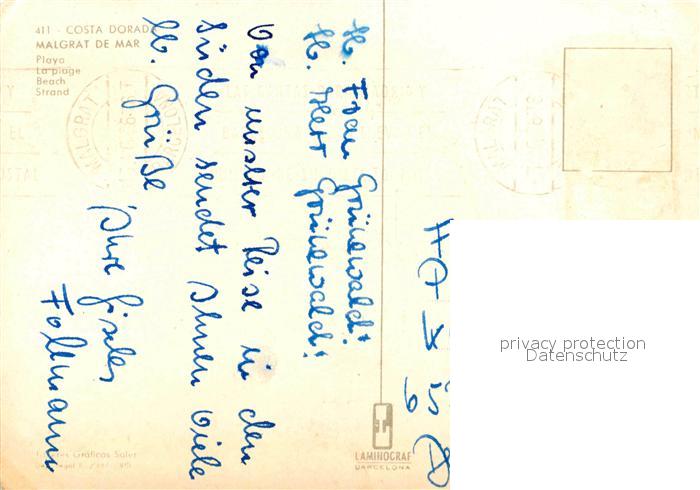 411 - COSTA DORADA
MALGRAT DE MAR
Playa
La plage
Beach
Strand
lb. Frau Grünewald!
lb. Herr Grünewald!
Von unserer Reise in den
Süden sendet Ihnen viele
lb. Grüße
Ihre Gisela
Follmann
LAMINOGRAF
BARCELONA
privacy protection
Datenschutz